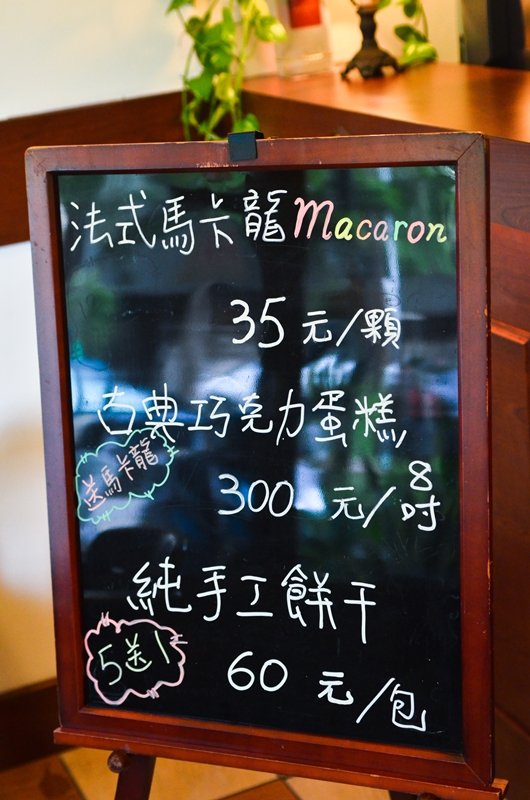 法式馬卡龍Macaron
35元/顆
古典巧克力蛋糕
送馬卡龍
300元/8吋
純手工餅干
5送1
60元/包